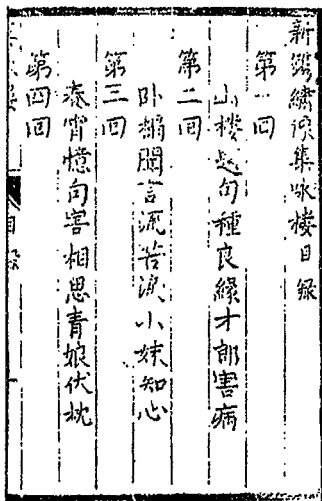 新鐫繡像集咏樓目録
第一回
山樓題句種良緣才郎害病
第二回
卧榻聞言流苦涙小妹知心
第三回
春宵憶句害相思青娘伏枕
第四回